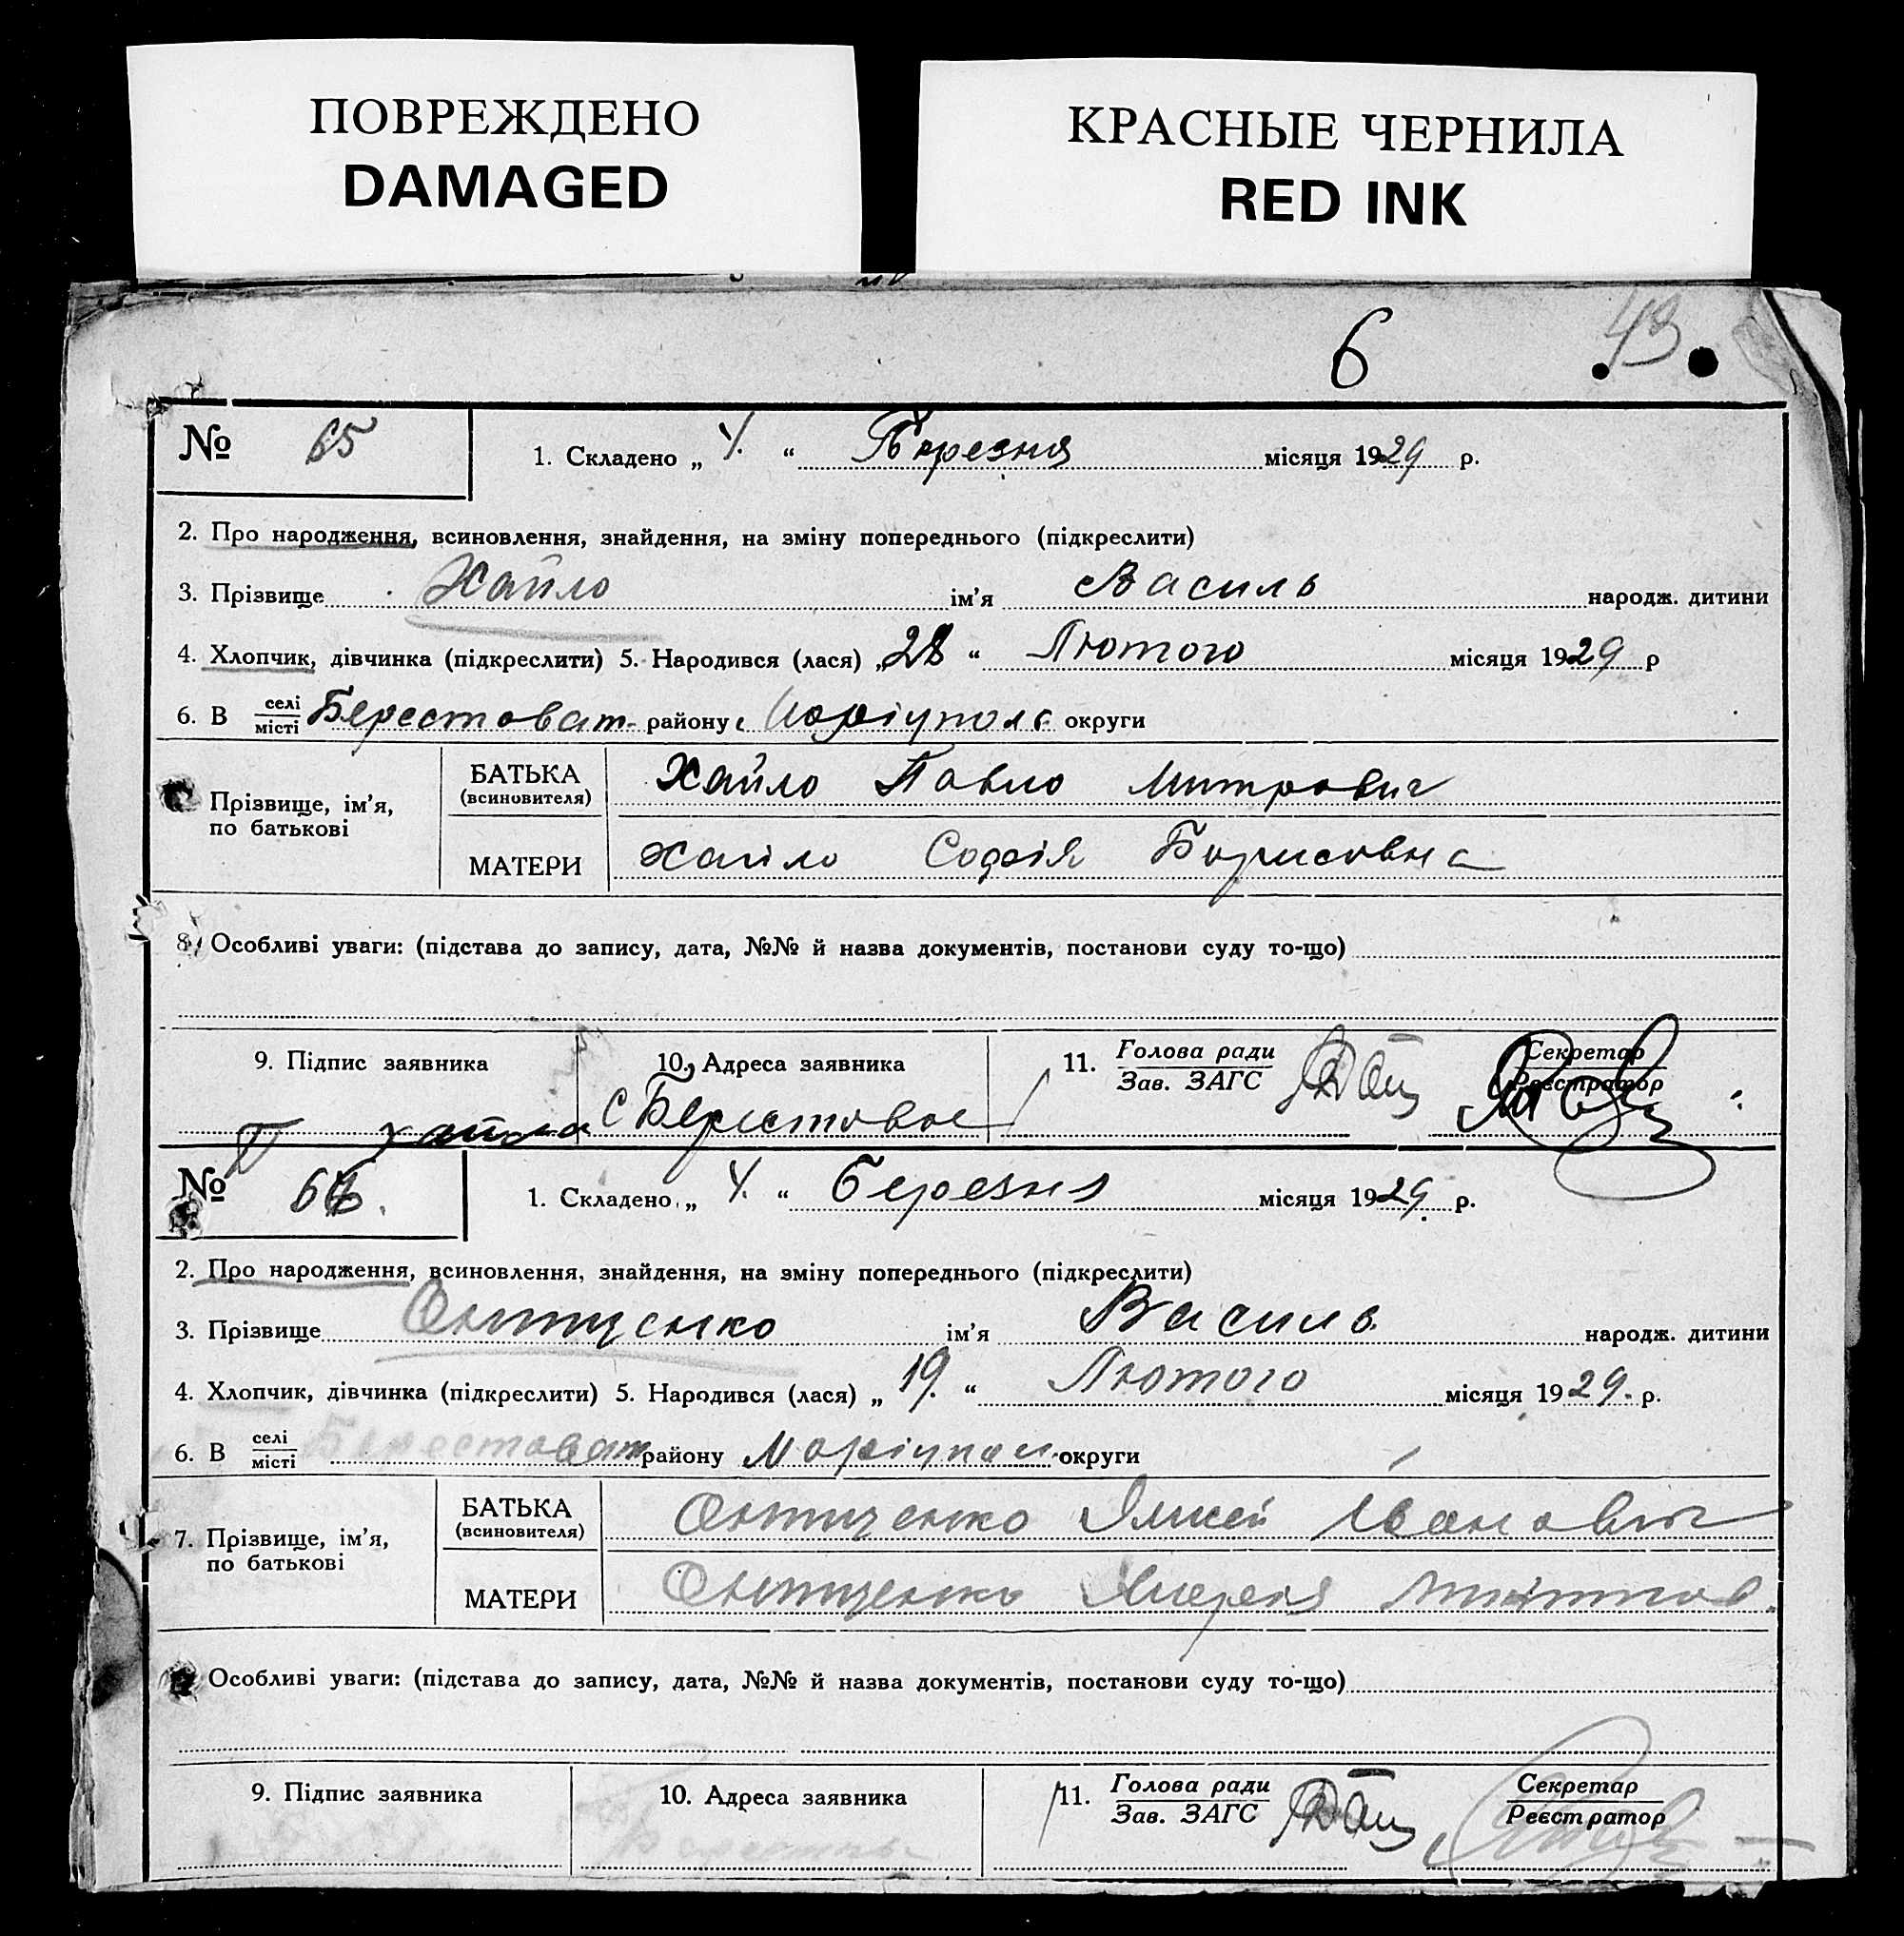 ПОВРЕЖДЕНО
DAMAGED
КРАСНЫЕ ЧЕРНИЛА
RED INK
6 43
№ 65 1. Складено „ 4. “ Березня місяця 1929 р.
2. Про народження, всиновлення, знайдення, на зміну попереднього (підкреслити)
3. Прізвище Хайло ім’я Василь народж. дитини
4. Хлопчик, дівчинка (підкреслити) 5. Народився (лася) „28“ Лютого місяця 1929 р
6. В селі/місті Берестоват. району Маріуполь округи
Прізвище, ім’я, по батькові
БАТЬКА (всиновителя) Хайло Павло Митрович
МАТЕРИ Хайло Софія Борисовна
8. Особливі уваги: (підстава до запису, дата, №№ й назва документів, постанови суду то-що)
9. Підпис заявника 10. Адреса заявника 11. Голова ради/Зав. ЗАГС Секретар/Реєстратор
Хайло с Берестовое
№ 66. 1. Складено „ 4. “ Березня місяця 1929 р.
2. Про народження, всиновлення, знайдення, на зміну попереднього (підкреслити)
3. Прізвище ім’я Василь народж. дитини
4. Хлопчик, дівчинка (підкреслити) 5. Народився (лася) „ 19. “ Лютого місяця 1929. р.
6. В селі/місті Берестоват району Маріупол. округи
7. Прізвище, ім’я, по батькові
БАТЬКА (всиновителя) Іванович
МАТЕРИ
Особливі уваги: (підстава до запису, дата, №№ й назва документів, постанови суду то-що)
9. Підпис заявника 10. Адреса заявника 11. Голова ради/Зав. ЗАГС Секретар/Реєстратор